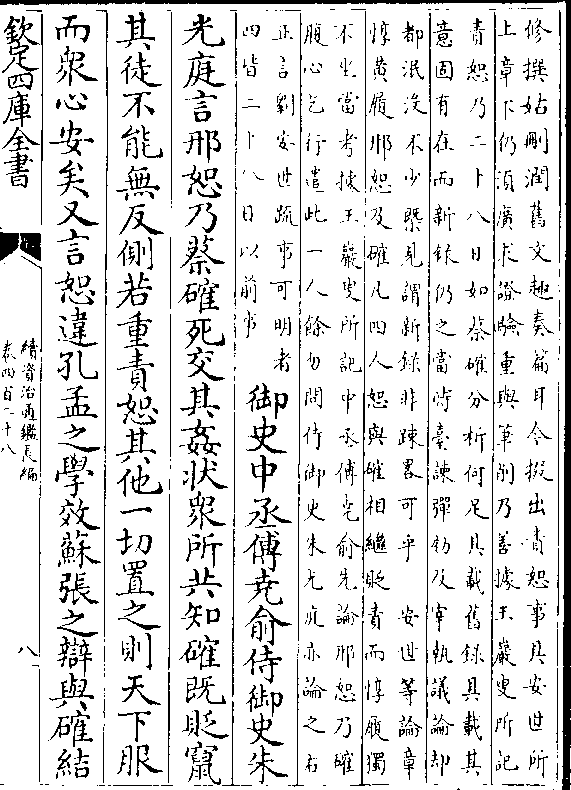 修撰姑刪潤舊文趣奏篇耳今掇出責恕事具安世所
上章下仍須廣求證驗重與筆削乃善據王巖叟所記
責恕乃二十八日如蔡確分析何足具載舊錄具載其
意固有在而新錄仍之當時臺諫彈劾及宰執議論却
都泯没不少槩見謂新錄非疎畧可乎 安世等論章
惇黄履邢恕及確凡四人恕與確相繼貶責而惇履獨
不坐當考據王巖叟所記中丞傅尭俞先論邢恕乃確
腹心乞行遣此一人餘勿問侍御史朱光庭亦論之右
正言劉安世疏事可明者
四皆二十八日以前事
御史中丞傅尭俞侍御史朱
光庭言邢恕乃蔡確死交其姦狀衆所共知確既貶竄
其徒不能無反側若重責恕其他一切置之則天下服
而衆心安矣又言恕違孔孟之學效蘇張之辯與確結
欽定四庫全書
續資治通鑑長編
卷四百二十八
八